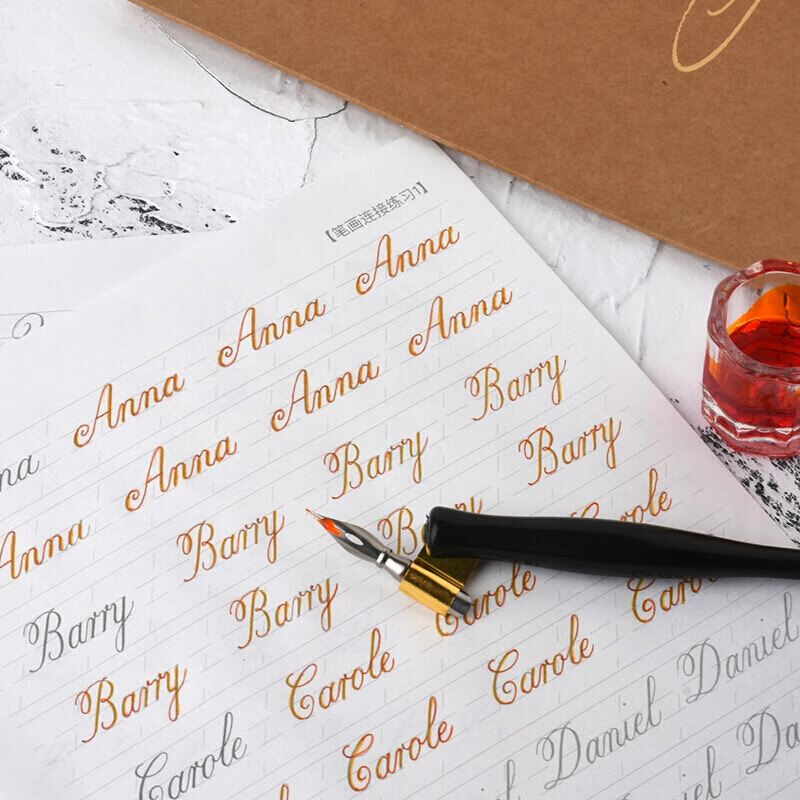 【笔画连接练习1】
na Anna Anna Anna
Anna Anna Anna Anna
Barry Barry Barry Barry
Barry Barry Ba Barry
Carole Carole Carole role
Carole Carole Caro
l Daniel Daniel
el Da